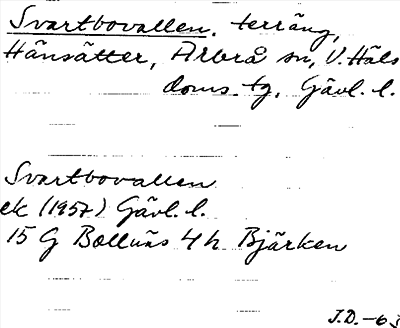 Svartbovallen, terräng,
Hänsätter, Arbrå sn, V. Häls
doms. tg, Gävl. l.
Svartbovallen
ek (1957) Gävl. l.
15 G Bollnäs 4 h Bjärken
J.D. -63